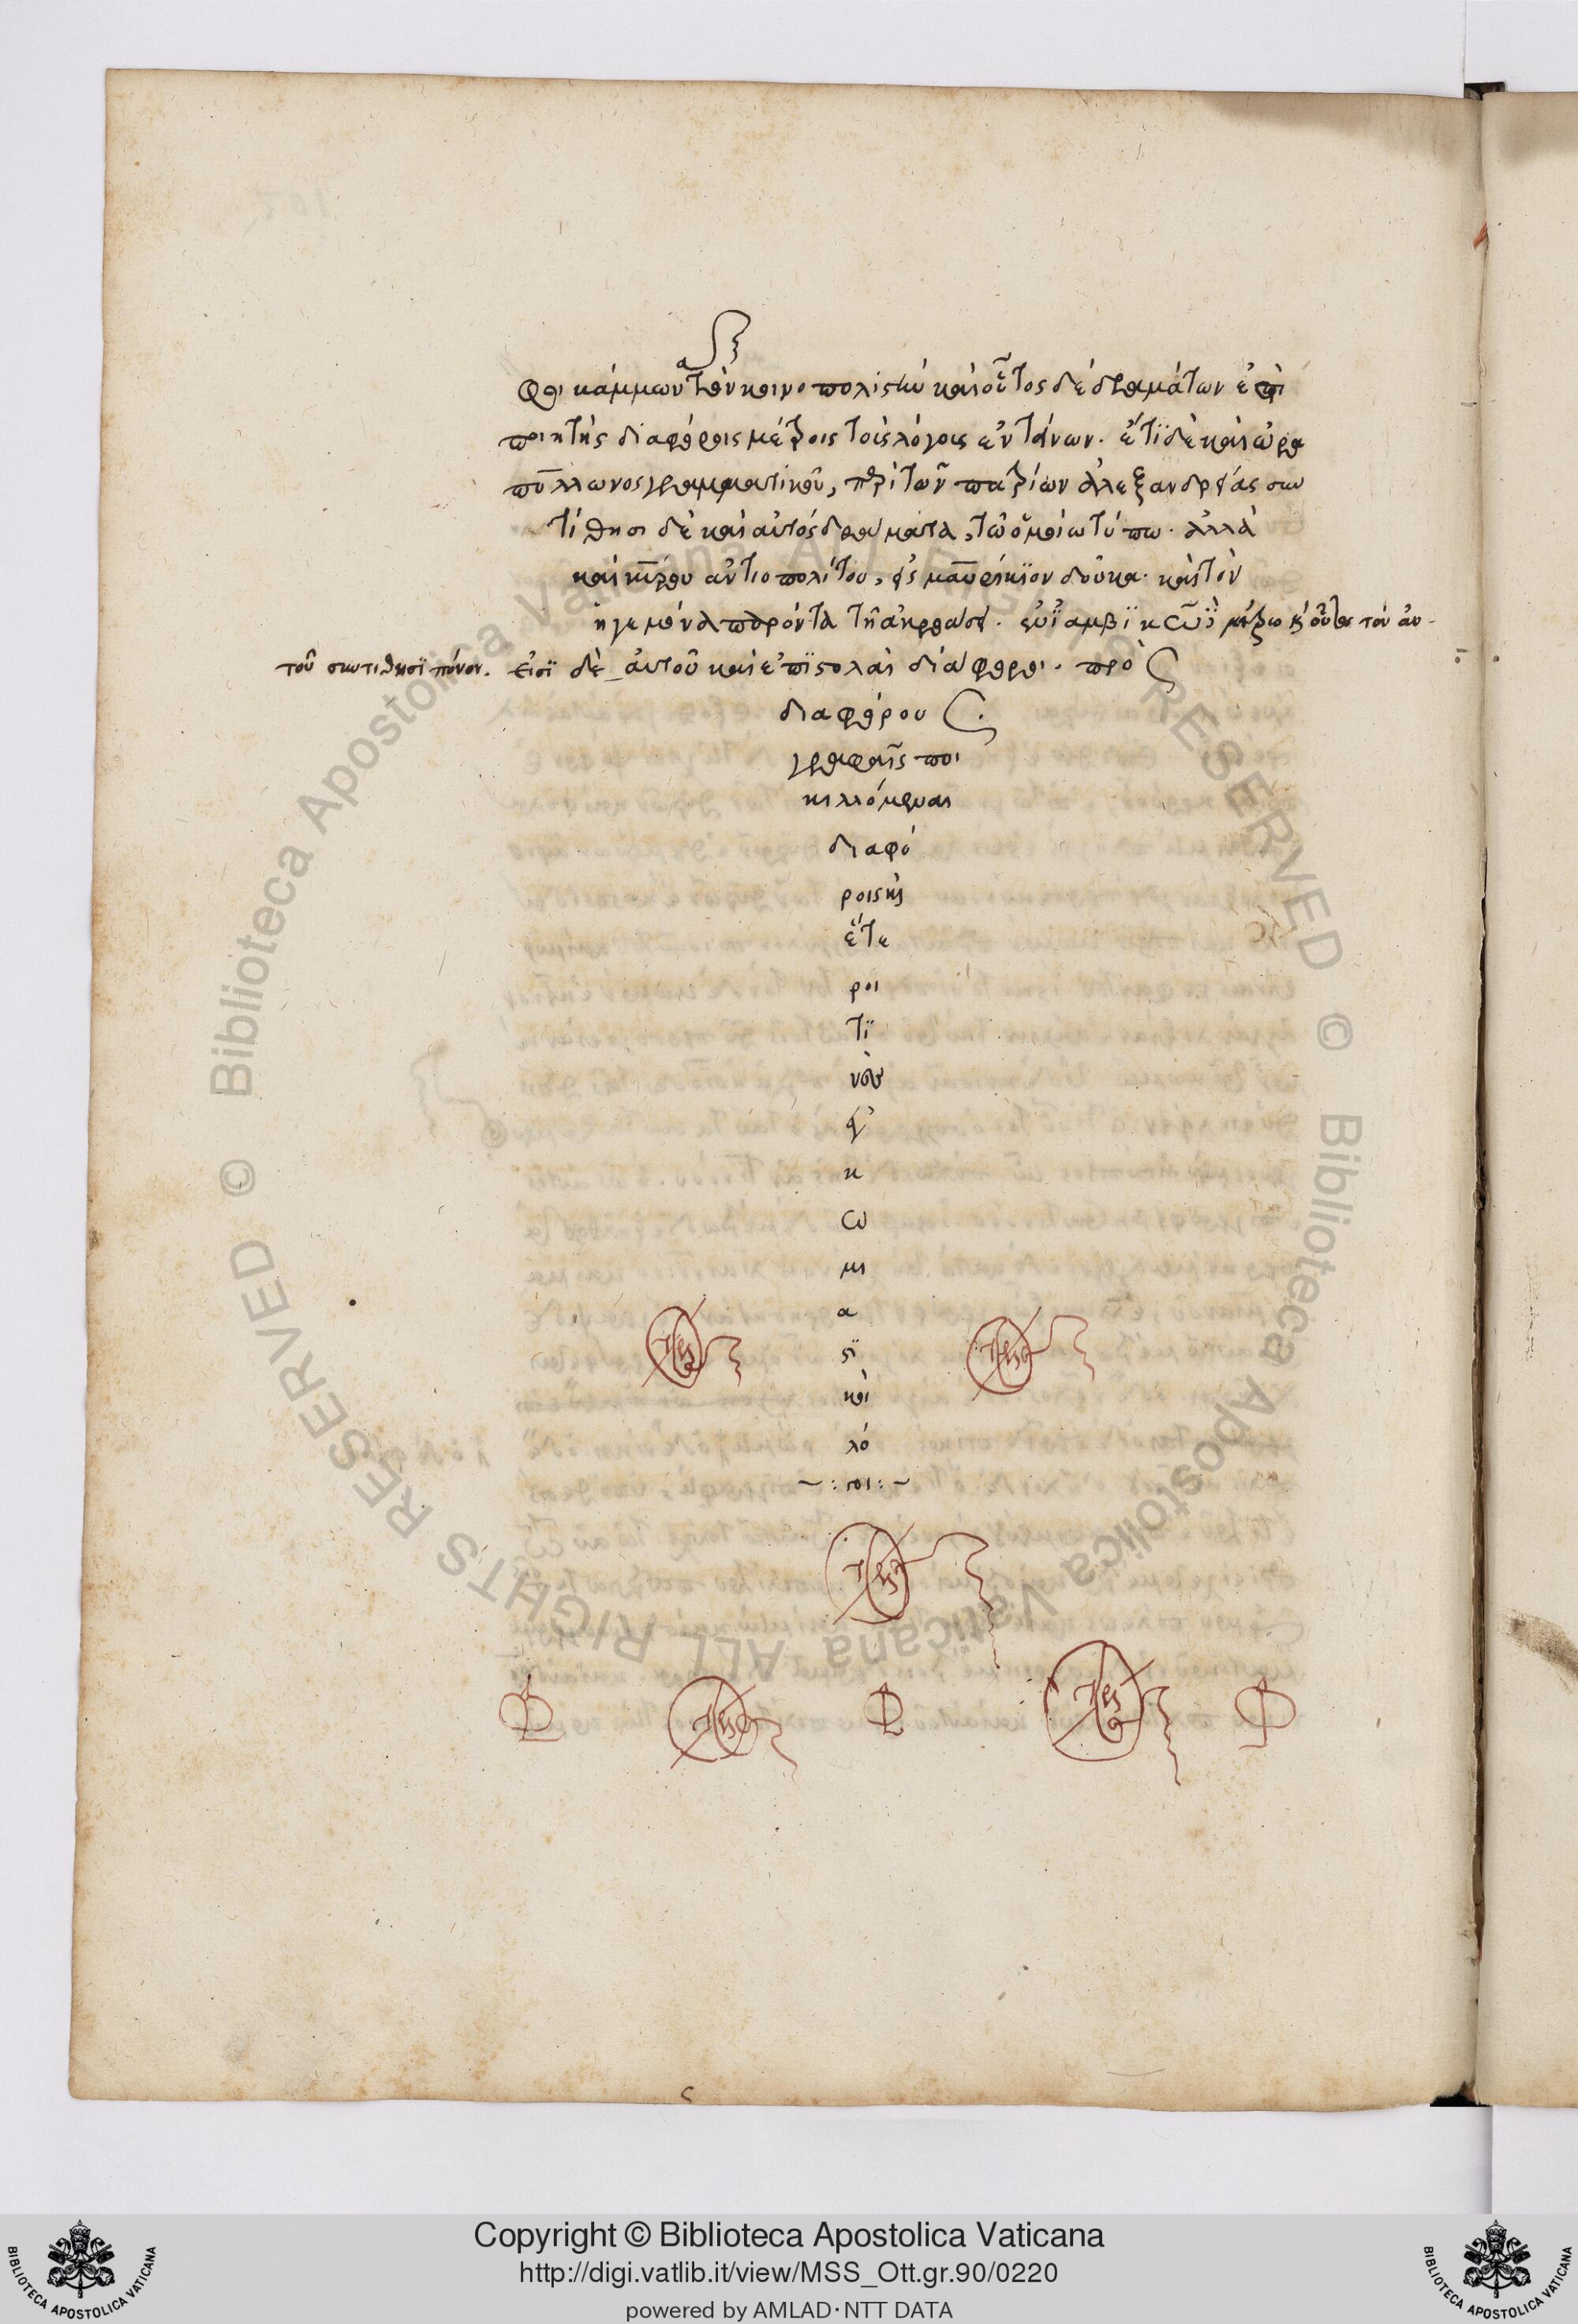 καὶ οὗτος δὲ δραμάτων
ποιητὴς διαφόροις μέτροις τοῖς λόγοις ἐντείνων. ἔτϊ δὲ καὶ ὡρα
πόλλωνος γραμματικοῦ, περὶ τῶν πατρίων ἀλεξανδρείας συν
τίθησι δὲ καὶ αὐτὸς δράματα, τῶ ὁμοίω τύπω. ἀλλὰ
καὶ κύρου ἀντιοπολίτου, εἰς μαυρίκϊον δοῦκα. καὶ τὸν
ἡγεμόνα παρόντα τῆ ἀκροάσει. ἐν ϊαμβϊκῶ μέτρω καὶ οὗτος τὸν αὐ-
τοῦ συντιθησϊ πόνον. εἰσϊ δὲ αὐτοῦ καὶ ἐπϊστολαὶ διάφοροι. πρὸς
διαφόρους.
γραφαῖς ποι
κιλλόμεναι
διαφό
ροις καὶ
ἕτε
ροι
τϊ
νὲς
ἐγ
κ
ω
μι
α
ςϊ
κοὶ
λό
~:γοι:~
Copyright © Biblioteca Apostolica Vaticana
http://digi.vatlib.it/view/MSS_Ott.gr.90/0220
powered by AMLAD·NTT DATA
© Biblioteca Apostolica Vaticana ALL RIGHTS RESERVED
© Biblioteca Apostolica Vaticana ALL RIGHTS RESERVED
BIBLIOTECA APOSTOLICA VATICANA
BIBLIOTECA APOSTOLICA VATICANA